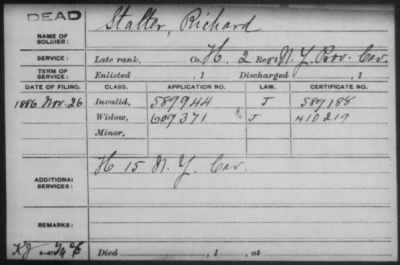 DEAD
NAME OF SOLDIER: Stalter, Richard
SERVICE: Late rank, Co. H. 2 Reg't N. Y. Prov. Cav.
TERM OF SERVICE: Enlisted , 1 Discharged , 1
DATE OF FILING. CLASS. APPLICATION NO. LAW. CERTIFICATE NO.
1886 Nov. 26 Invalid, 589944 J 589188
Widow, 609371 J 410219
Minor,
ADDITIONAL SERVICES: H 15 N. Y. Cav.
REMARKS:
Died , 1 , at